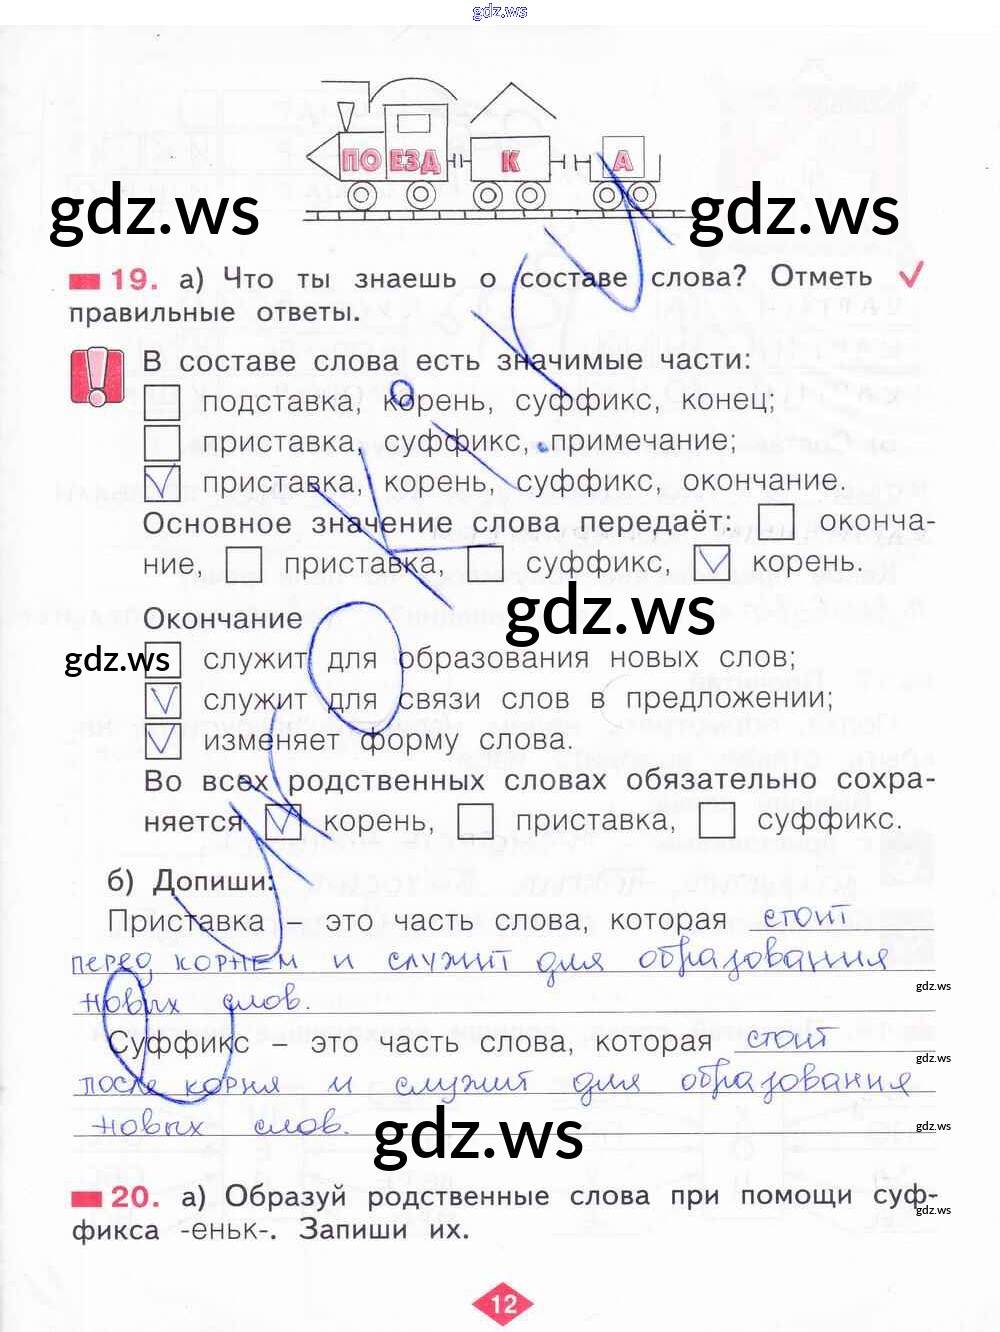 gdz.ws
ПО ЕЗД К А
gdz.ws gdz.ws
19. а) Что ты знаешь о составе слова? Отметь √
правильные ответы.
! В составе слова есть значимые части:
подставка, корень, суффикс, конец;
приставка, суффикс, примечание;
приставка, корень, суффикс, окончание.
Основное значение слова передаёт: оконча-
ние, приставка, суффикс, корень.
gdz.ws
Окончание
gdz.ws
служит для образования новых слов;
служит для связи слов в предложении;
изменяет форму слова.
Во всех родственных словах обязательно сохра-
няется корень, приставка, суффикс.
б) Допиши:
Приставка – это часть слова, которая стоит
перед корнем и служит для образования
gdz.ws
новых слов.
Суффикс – это часть слова, которая стоит
gdz.ws
после корня и служит для образования
новых слов.
gdz.ws gdz.ws
20. а) Образуй родственные слова при помощи суф-
gdz.ws
фикса -еньк-. Запиши их.
12